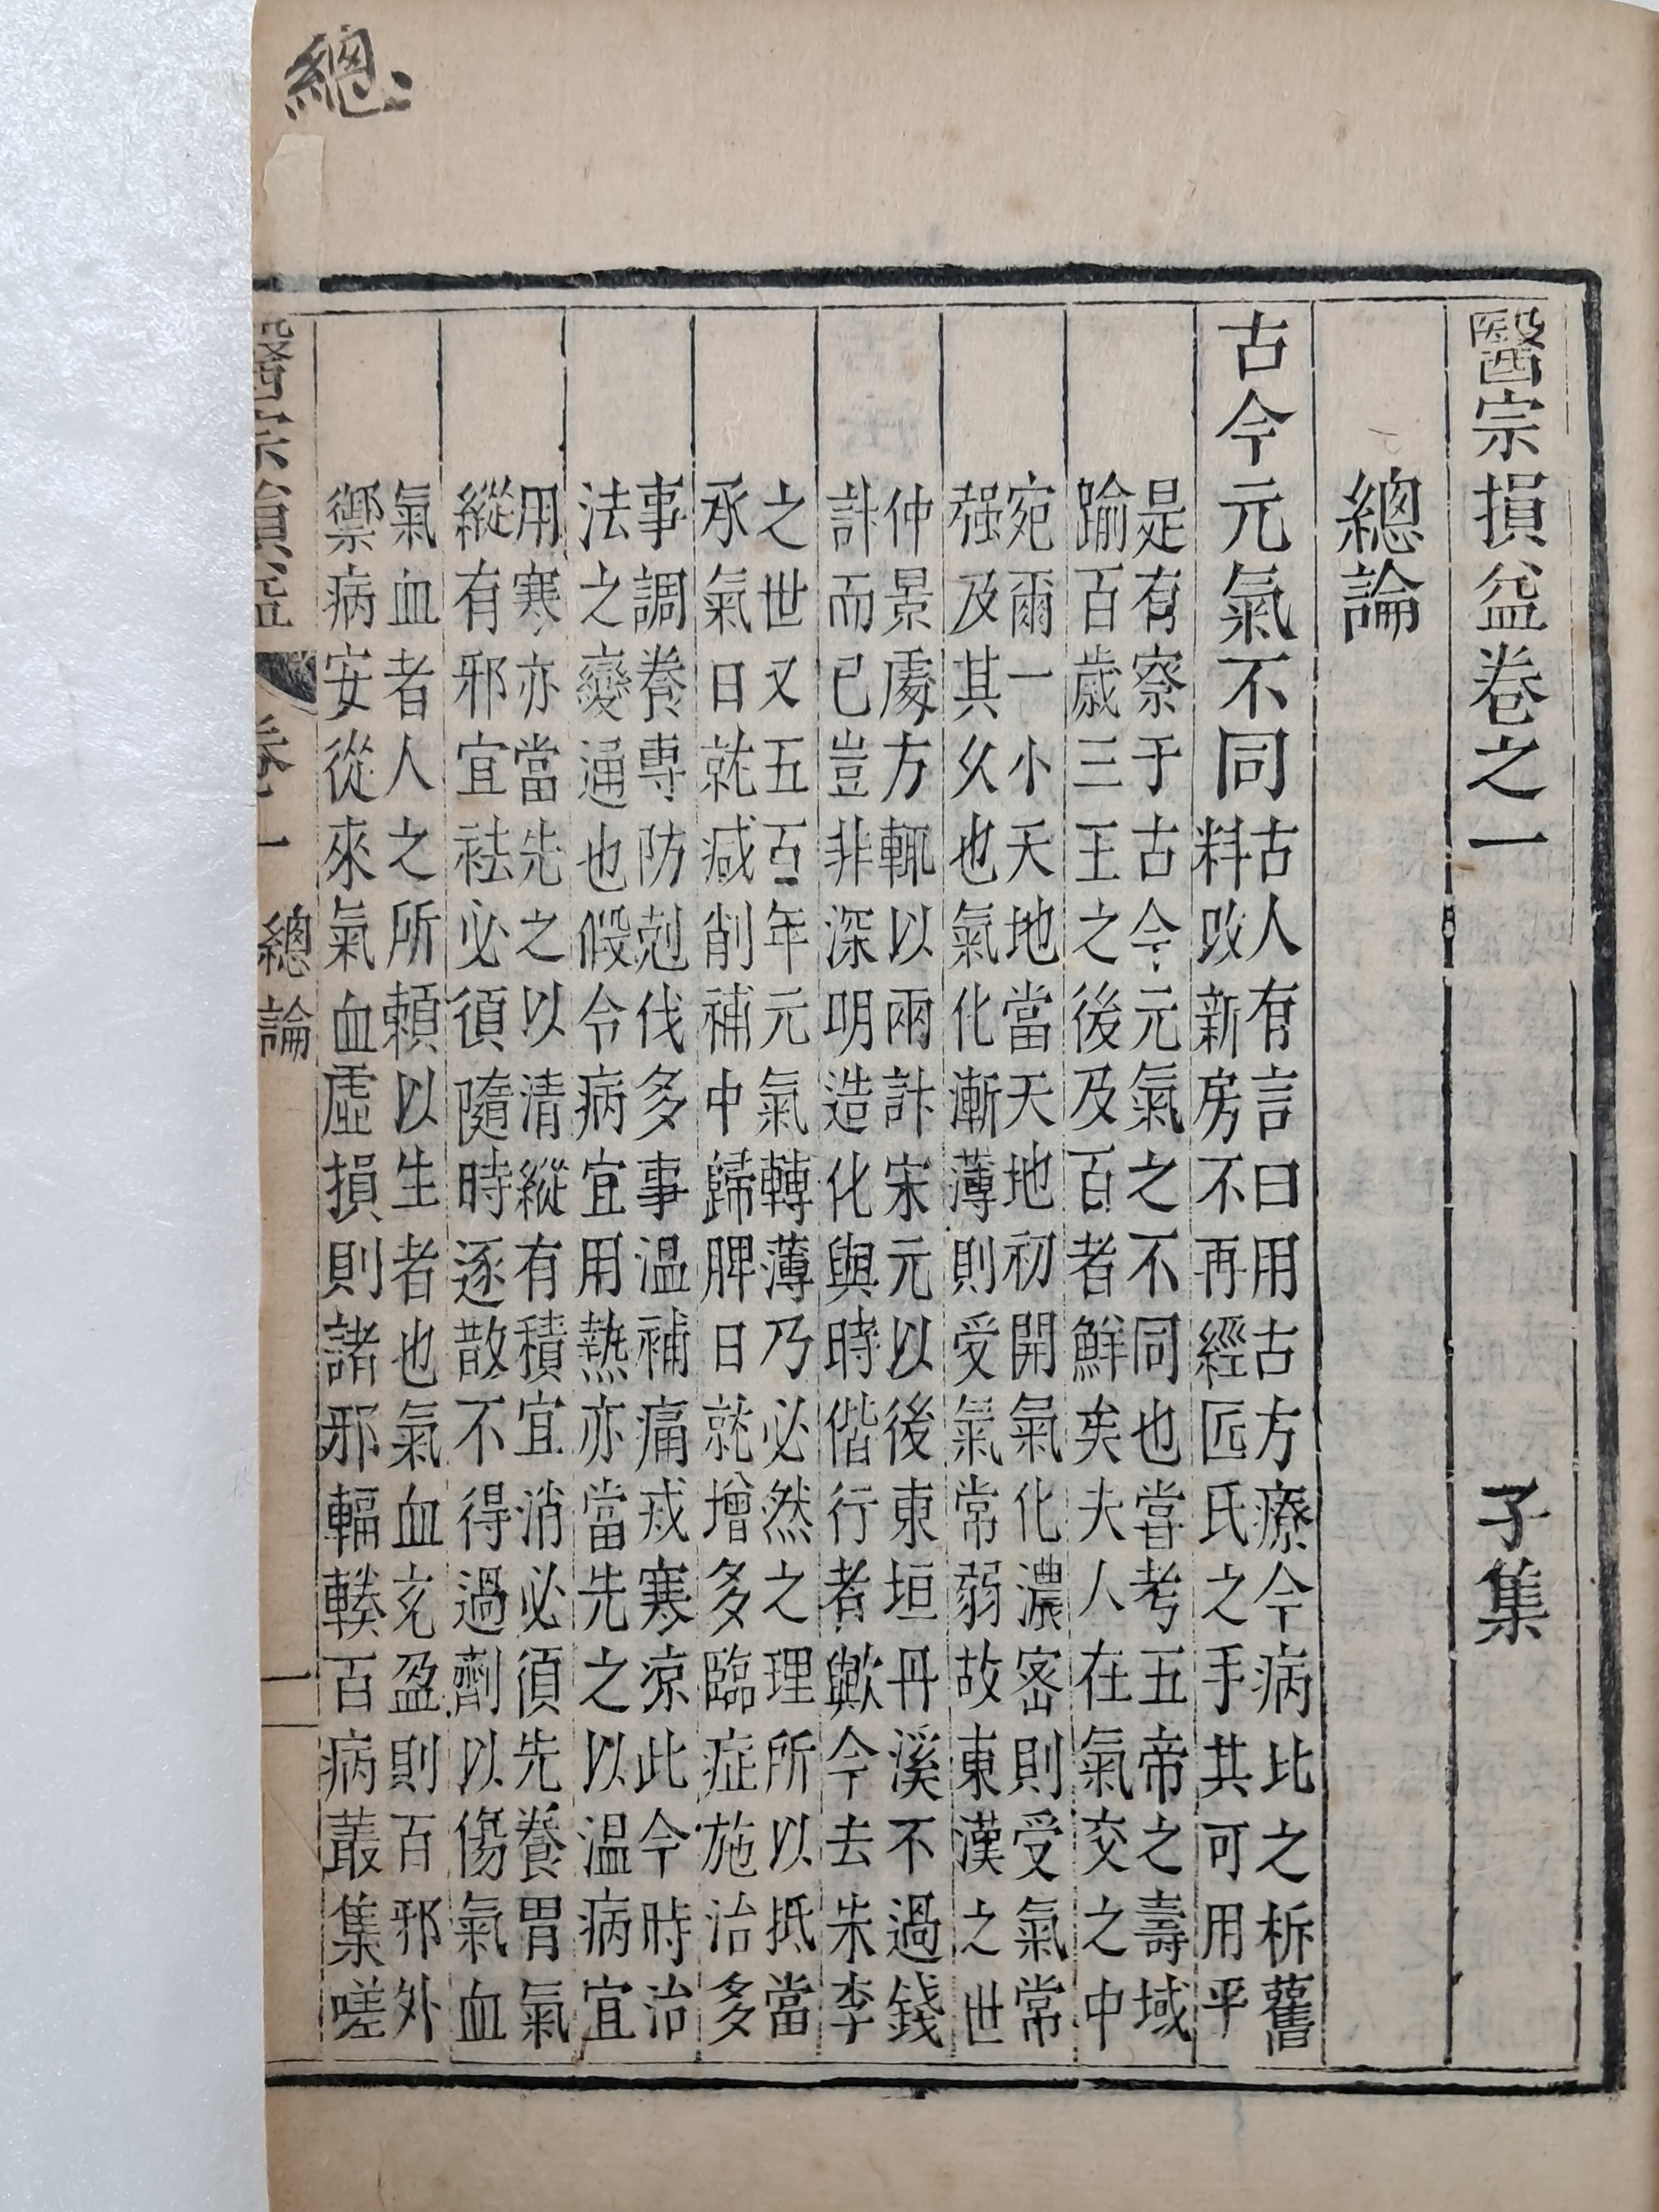 總
醫宗損益卷之一 子集
總論
古今元氣不同
古人有言曰用古方療今病比之柝舊
料改新房不再經匠氏之手其可用乎
是有察于古今元氣之不同也嘗考五帝之壽域
踰百歲三王之後及百者鮮矣夫人在氣交之中
宛爾一小天地當天地初開氣化濃密則受氣常
强及其久也氣化漸薄則受氣常弱故東漢之世
仲景處方輒以兩計宋元以後東垣丹溪不過錢
計而已豈非深明造化與時偕行者歟今去朱李
之世又五百年元氣轉薄乃必然之理所以抵當
承氣日就减削補中歸脾日就增多臨症施治多
事調養專防剋伐多事温補痛戒寒凉此今時治
法之變通也假令病宜用熱亦當先之以温病宜
用寒亦當先之以清縱有積宜消必須先養胃氣
縱有邪宜祛必須隨時逐散不得過劑以傷氣血
氣血者人之所賴以生者也氣血充盈則百邪外
禦病安從來氣血虛損則諸邪輻輳百病叢集嗟
醫宗損益 卷一 總論 一